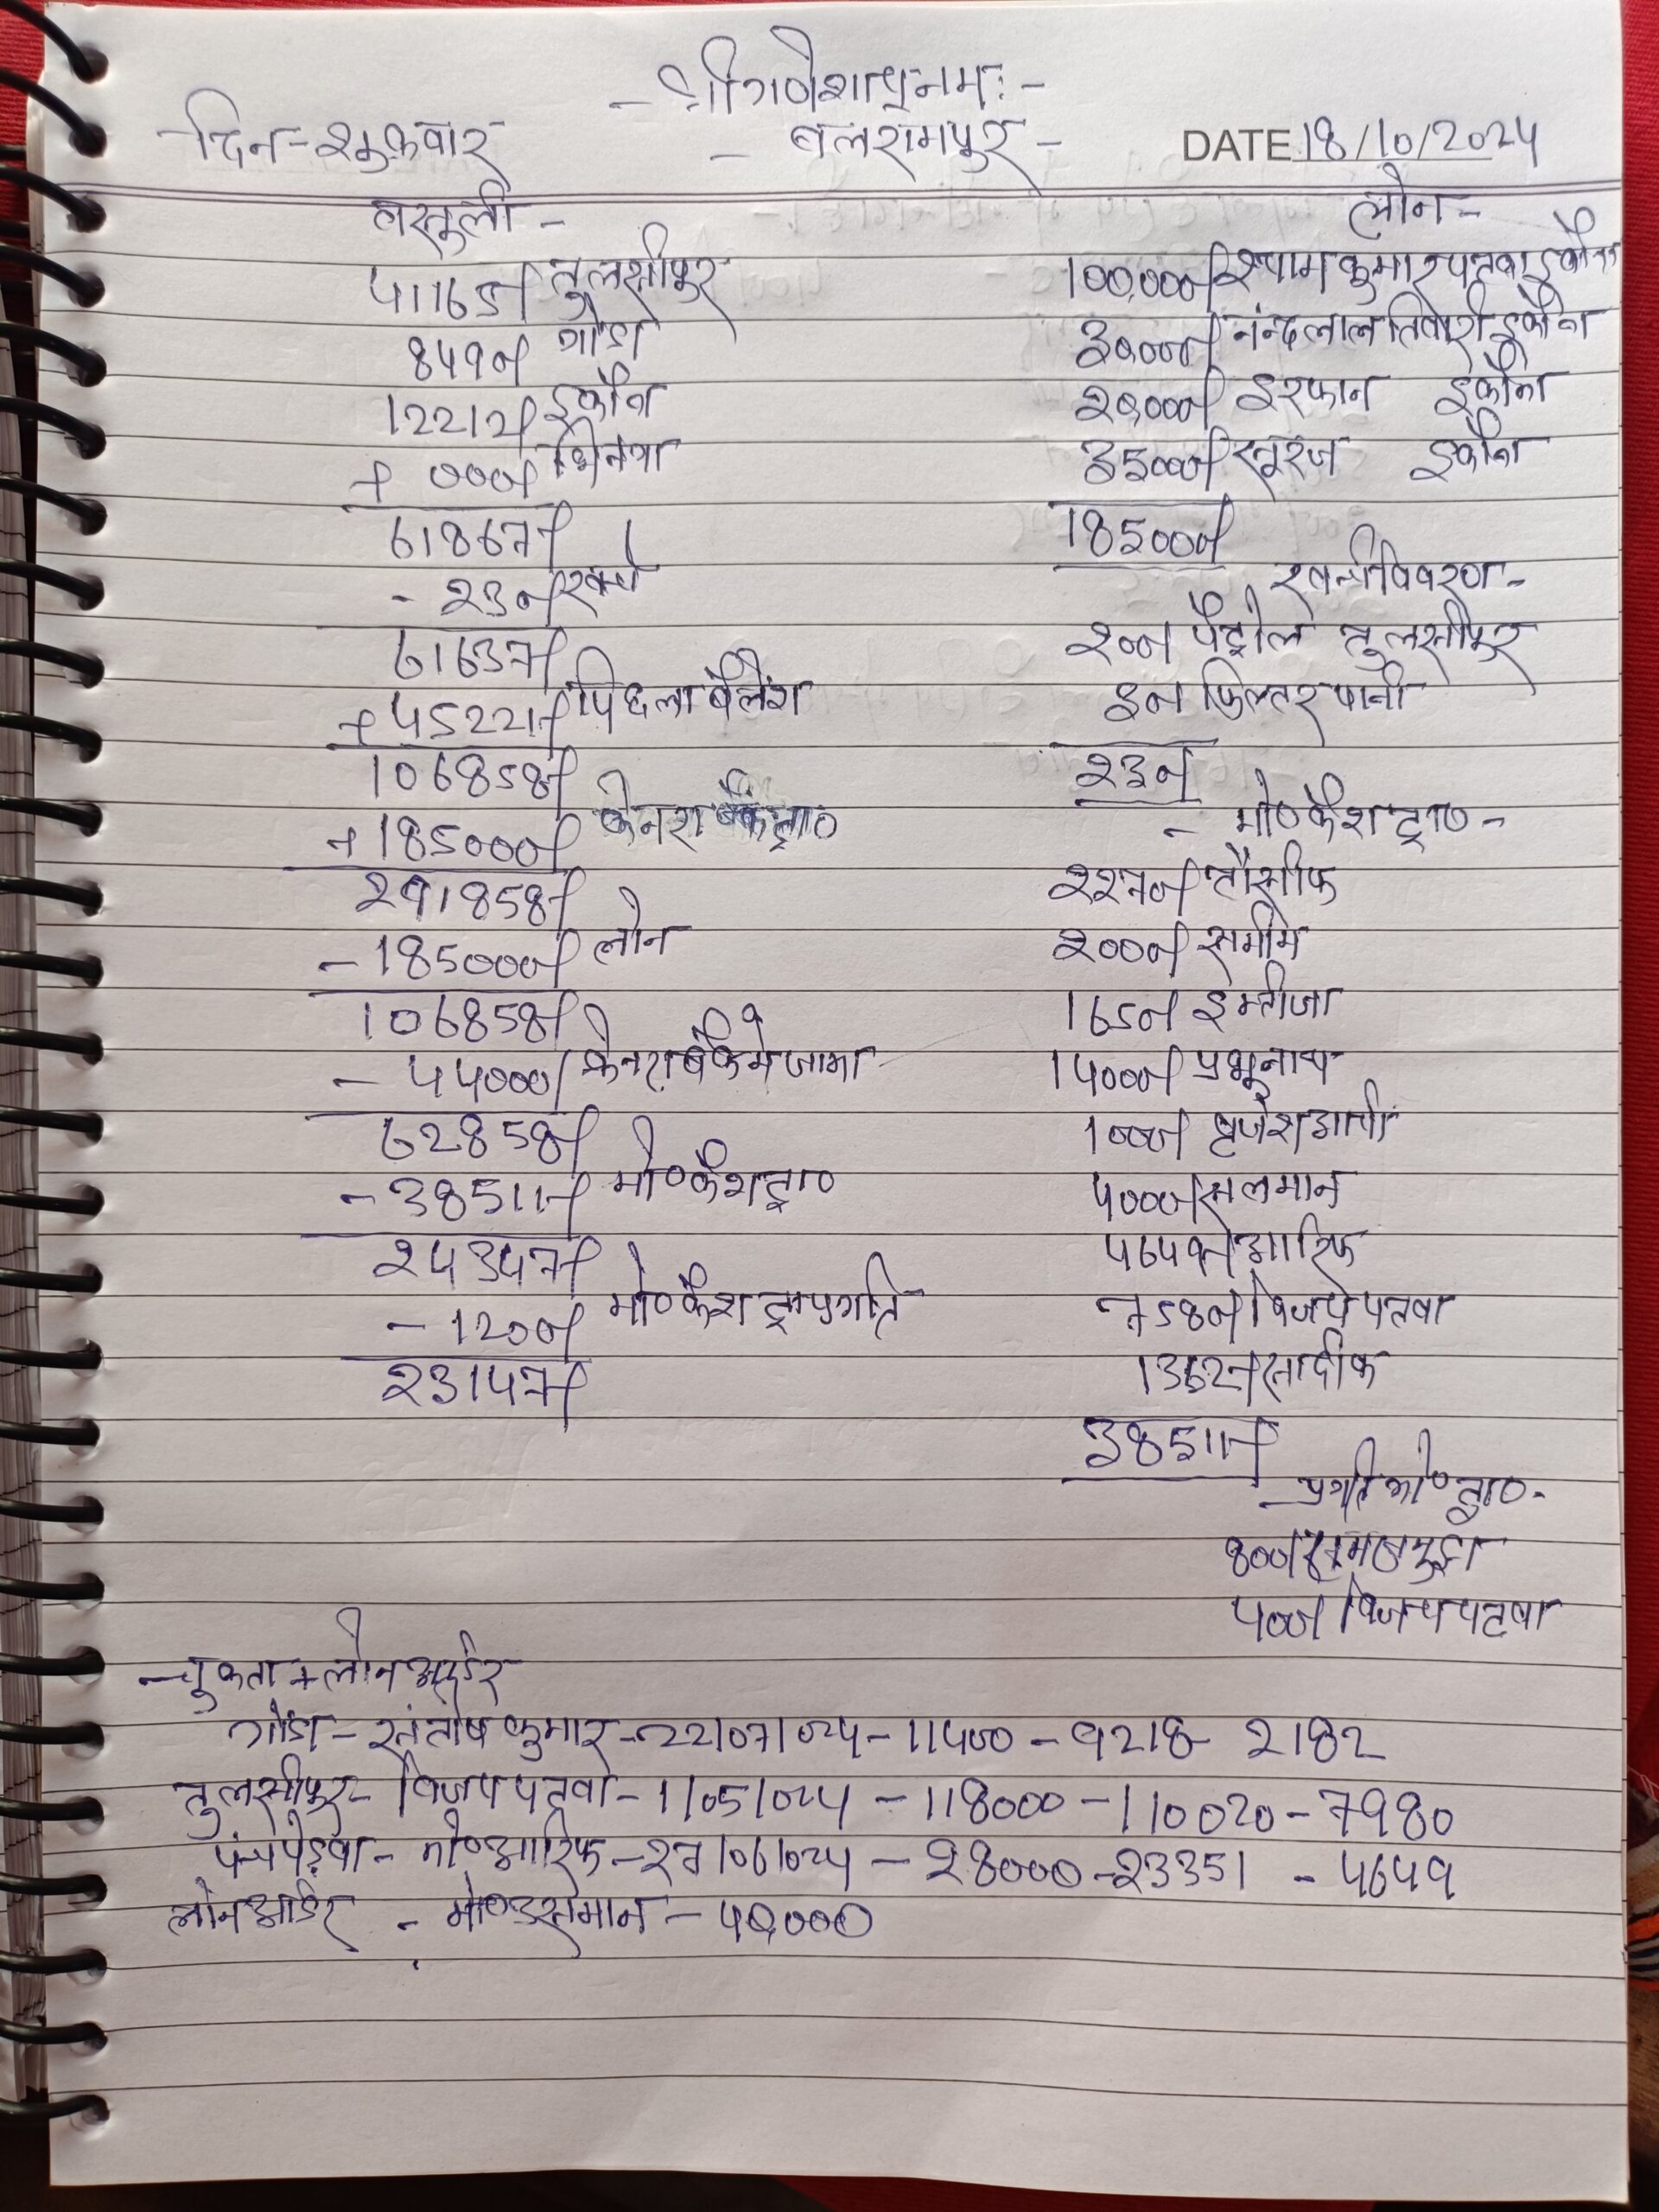 - श्री गणेशाय नमः -
दिन - शुक्रवार - बलरामपुर - DATE 18/10/2024
वसूली - लोन -
41165/- तुलसीपुर 100,000/- श्याम कुमार पटवा इकौना
8490/- गोंडा 30,000/- नंन्दलाल तिवारी इकौना
12212/- इकौना 20,000/- इरफान इकौना
+ 000/- भिनगा 35000/- सूरज इकौना
61867/- 185000/-
- 230/- खर्चा खर्चा विवरण -
61637/- 200/- पैट्रोल तुलसीपुर
+ 45221/- पिछला बैलेंश 30/- फिल्टर पानी
106858/- 230/-
+ 185000/- केनरा बैंक द्वा० - मो० कैश द्वा० -
291858/- 2270/- तौसीफ
- 185000/- लोन 2000/- समीम
106858/- 1650/- इम्तीजा
- 44000/- केनरा बैंक मे जामा 14000/- प्रभूनाथ
62858/- 1000/- बृजेश आर्या
- 38511/- मो० कैश द्वा० 4000/- सलमान
24347/- 4649/- आरिफ
- 1200/- मो० कैश द्वा प्रगति 7580/- विजय पटवा
23147/- 1362/- सादीक
38511/-
- प्रगति मो० द्वा० -
800/-
400/- विजय पटवा
- चुकता + लोन आर्डर
गोंडा - संतोष कुमार - 22/07/024 - 11400 - 9218 - 2182
तुलसीपुर - विजय पटवा - 1/05/024 - 118000 - 110020 - 7980
पंचपेड़वा - मो० आरिफ - 27/06/024 - 28000 - 23351 - 4649
लोन आर्डर - मो० उसमान - 40,000